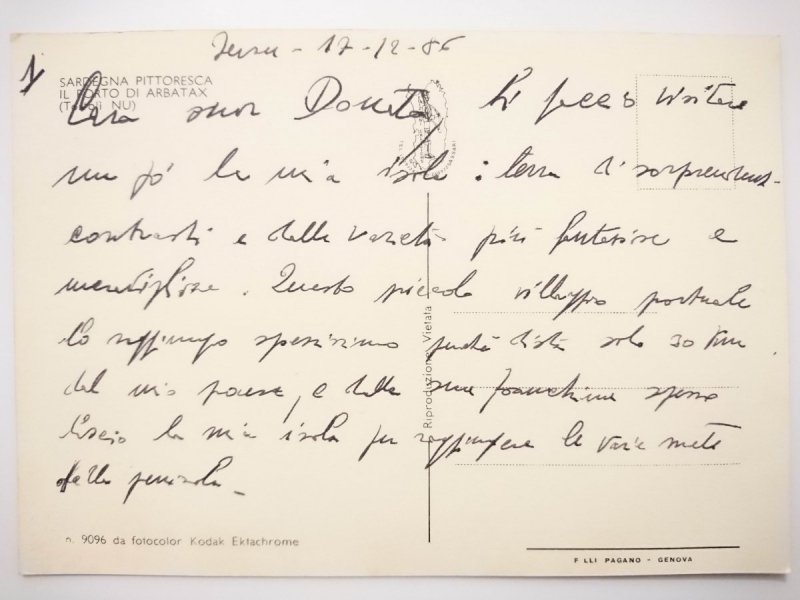 Jerzu - 17-12-86
1)
SARDEGNA PITTORESCA
IL PORTO DI ARBATAX
(Tortolì NU)
Cara suor Donata, ti faccio visitare
un pò la mia isola: terra di sorprendenti
contrasti e dalle varietà più fantasiose e
meravigliose. Questo piccolo villaggio portuale
lo raggiungo spessissimo perché dista solo 30 Km.
dal mio paese, e dalle sue banchine spesso
lascio la mia isola per raggiungere le varie mete
della penisola -
Riproduzione Vietata
n. 9096 da fotocolor Kodak Ektachrome
F.LLI PAGANO - GENOVA